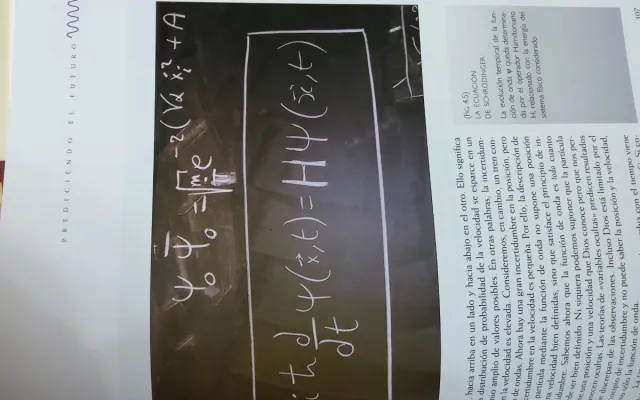 PREDICIENDO EL FUTURO
iħ d/dt Ψ(x⃗,t) = HΨ(x⃗,t)
(FIG. 4.5)
LA ECUACIÓN
DE SCHRÖDINGER
La evolución temporal de la fun-
ción de onda ψ queda determina-
da por el operador Hamiltoniano
H, relacionado con la energía del
sistema físico considerado
hacia arriba en un lado y hacia abajo en el otro. Ello significa
distribución de probabilidad de la velocidad se esparce en un
amplio de valores posibles. En otras palabras, la incertidum-
la velocidad es elevada. Consideremos, en cambio, un tren con-
de ondas. Ahora hay una gran incertidumbre en la posición, pero
certidumbre en la velocidad es pequeña. Por ello, la descripción de
partícula mediante la función de onda no supone una posición
a velocidad bien definidas, sino que satisface el principio de in-
dumbre. Sabemos ahora que la función de onda es todo cuanto
de ser bien definido. Ni siquiera podemos suponer que la partícula
una posición y una velocidad que Dios conoce pero que nos per-
ecen ocultas. Las teorías de «variables ocultas» predicen resultados
discrepan de las observaciones. Incluso Dios está limitado por el
cipio de incertidumbre y no puede saber la posición y la velocidad,
la función de onda
con el tiempo viene
107